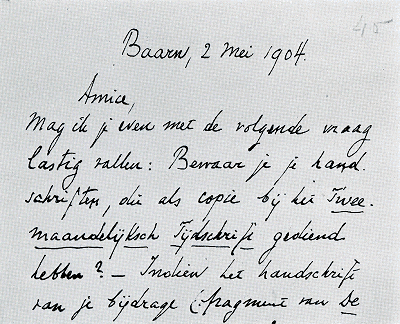 45
Baarn, 2 Mei 1904.
Amice,
Mag ik je even met de volgende vraag
lastig vallen: Bewaar je je hand-
schriften, die als copie bij het Twee-
maandelijksch Tijdschrift gediend
hebben? — Indien het handschrift
van je bijdrage (: fragment van De